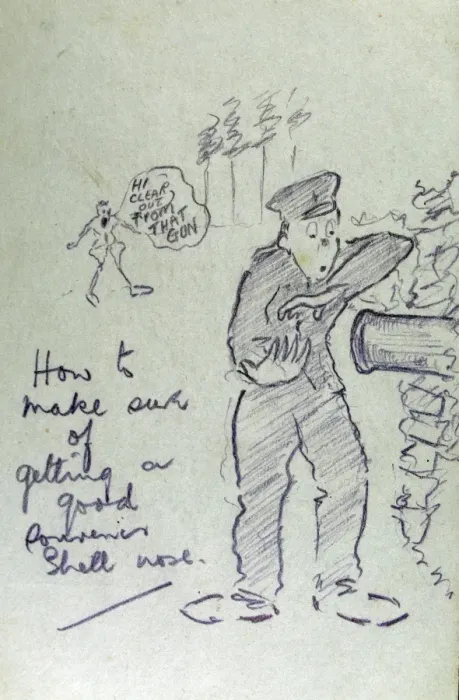 HI
CLEAR
OUT
FROM
THAT
GUN
How to
make sure
of
getting a
good
souvenir
Shell nose.